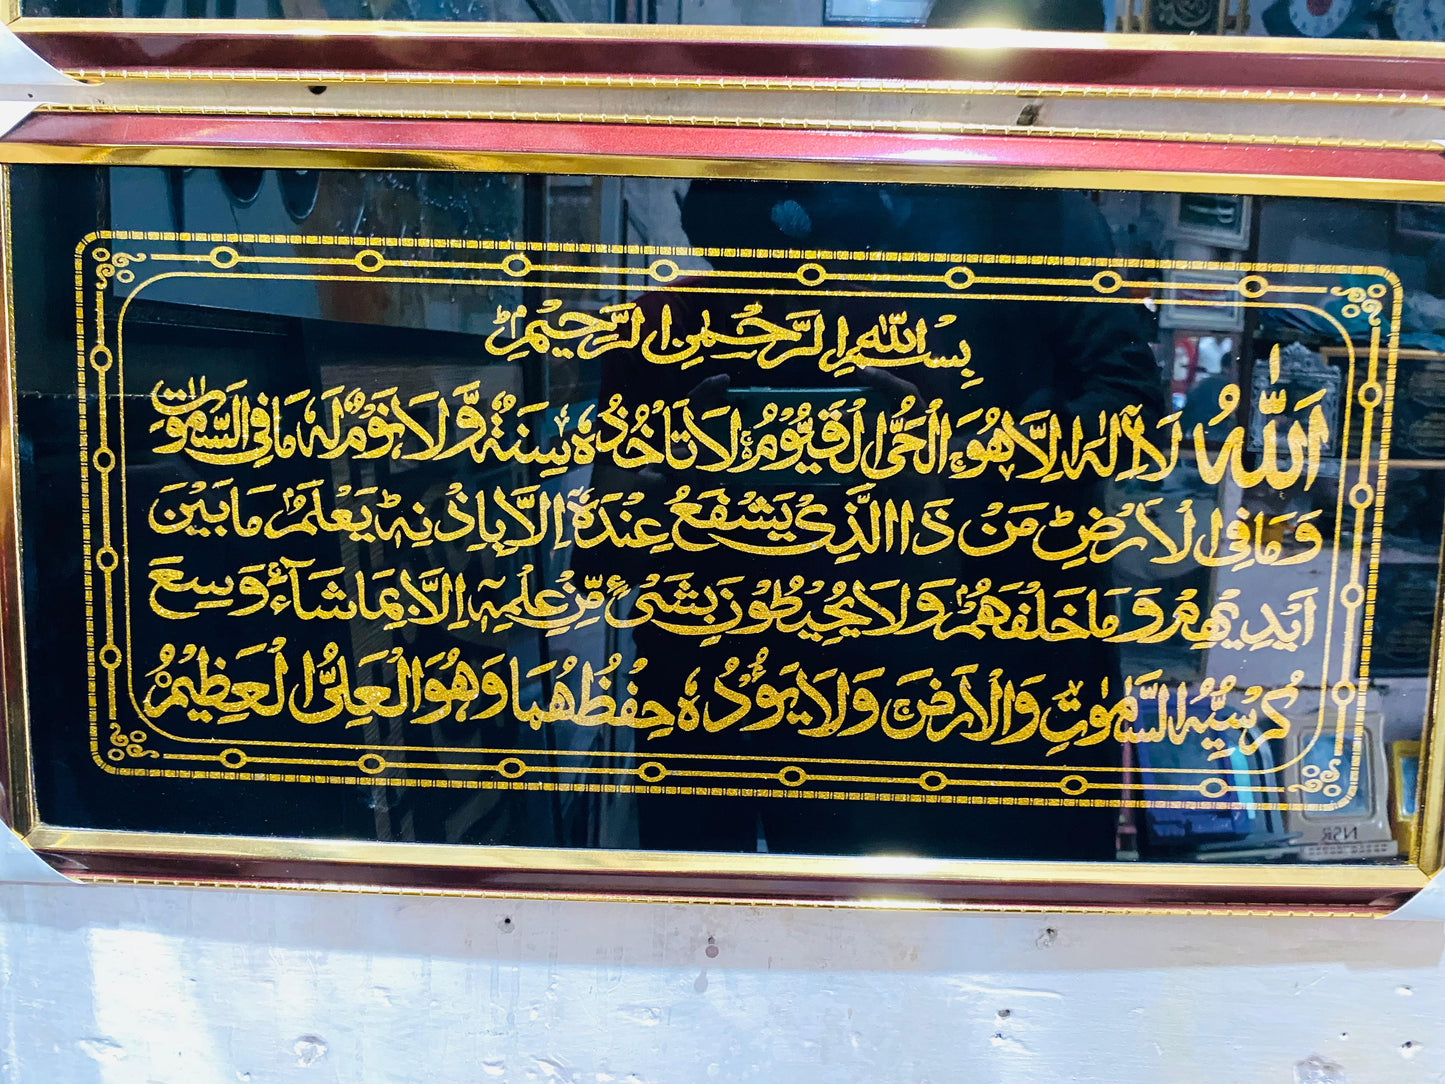 بِسْمِ اللّٰهِ الرَّحْمٰنِ الرَّحِيْمِ
اَللّٰهُ لَاۤ اِلٰهَ اِلَّا هُوَ اَلْحَىُّ الْقَيُّوْمُ لَا تَاْخُذُهٗ سِنَةٌ وَّلَا نَوْمٌ لَهٗ مَا فِى السَّمٰوٰتِ
وَمَا فِى الْاَرْضِ مَنْ ذَا الَّذِىْ يَشْفَعُ عِنْدَهٗۤ اِلَّا بِاِذْنِهٖ يَعْلَمُ مَا بَيْنَ
اَيْدِيْهِمْ وَمَا خَلْفَهُمْ وَلَا يُحِيْطُوْنَ بِشَىْءٍ مِّنْ عِلْمِهٖۤ اِلَّا بِمَا شَآءَ وَسِعَ
كُرْسِيُّهُ السَّمٰوٰتِ وَالْاَرْضَ وَلَا يَـُٔوْدُهٗ حِفْظُهُمَا وَهُوَ الْعَلِىُّ الْعَظِيْمُ
NSR